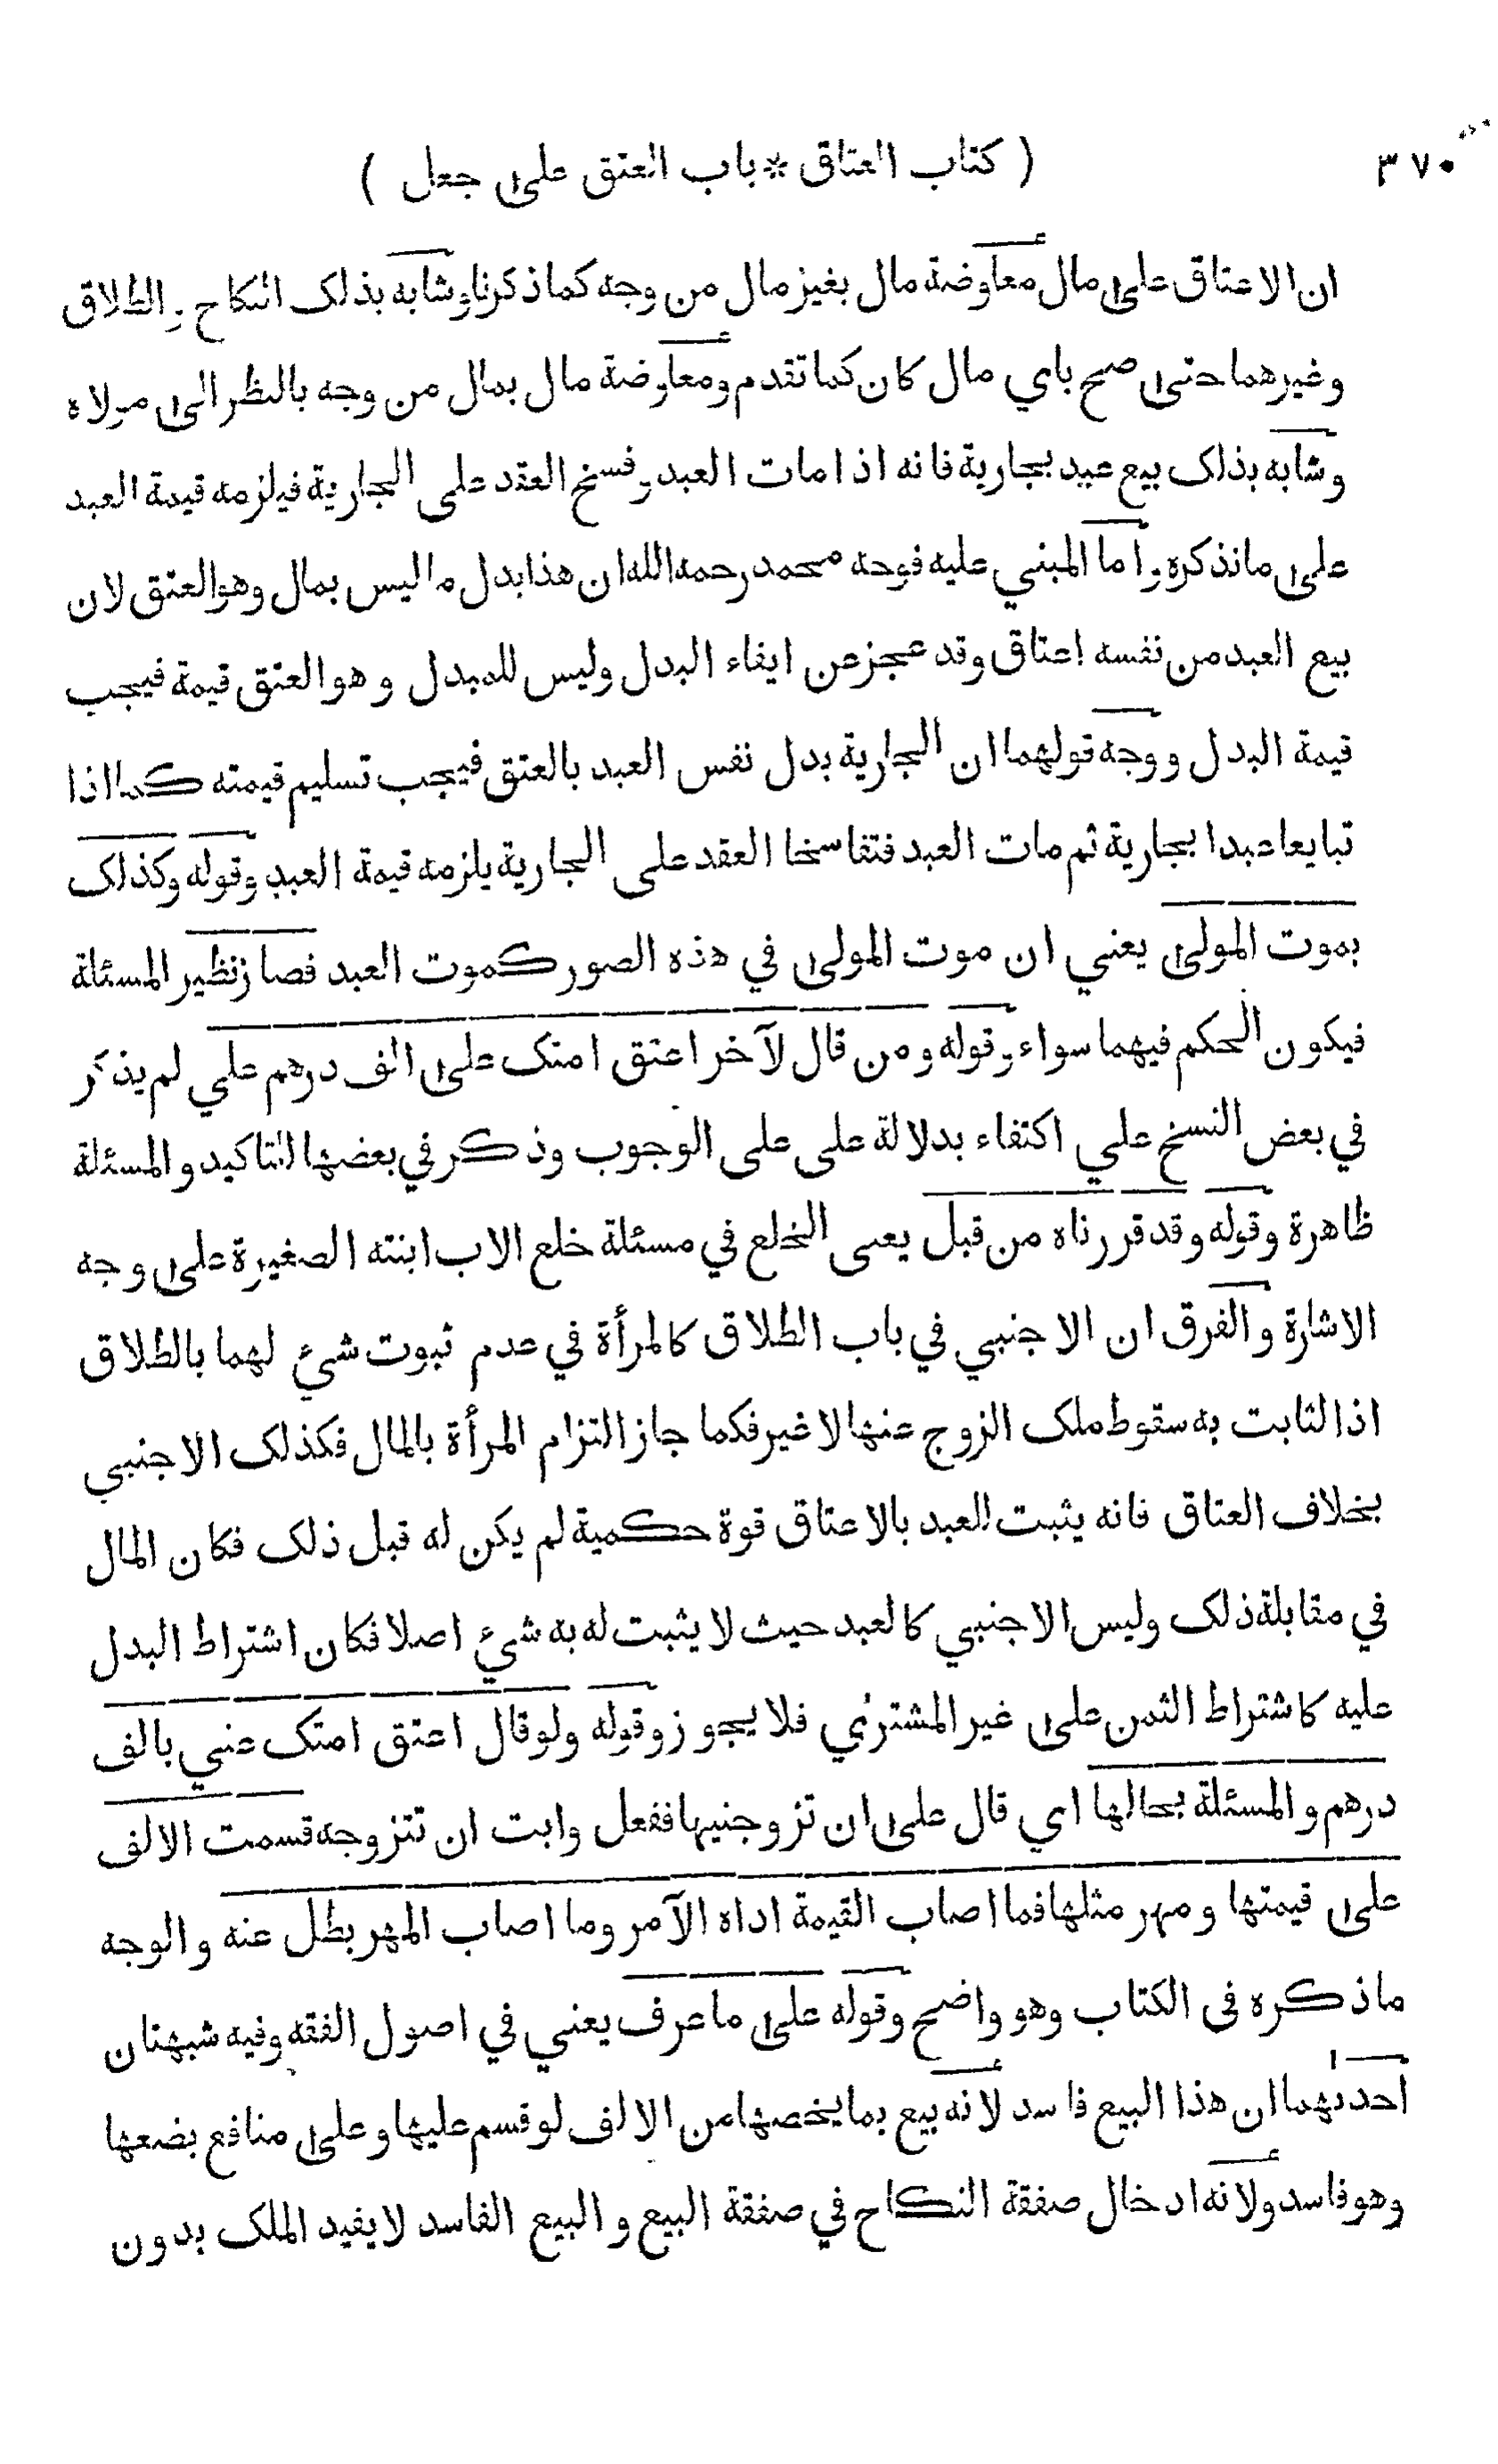 ٣٧٠
( كتاب العتاق * باب العتق على جعل )
ان الاعتاق على مال معاوضة مال بغير مال من وجه كما ذكرنا وشابه بذلك النكاح والطلاق
وغيرهما حتى صح باي مال كان كما تقدم ومعاوضة مال بمال من وجه بالنظر الى مولاه
وشابه بذلك بيع عبد بجارية فانه اذا مات العبد وفسخ العقد على الجارية فيلزمه قيمة العبد
على ما نذكره واما المبني عليه فوجه محمد رحمه الله ان هذا بدل ما ليس بمال وهو العتق لان
بيع العبد من نفسه اعتاق وقد عجز عن ايفاء البدل وليس للمبدل وهو العتق قيمة فيجب
قيمة البدل ووجه قولهما ان الجارية بدل نفس العبد بالعتق فيجب تسليم قيمته كما اذا
تبايعا عبدا بجارية ثم مات العبد فتفاسخا العقد على الجارية يلزمه قيمة العبد وقوله وكذلك
بموت المولى يعني ان موت المولى في هذه الصور كموت العبد فصار نظير المسئلة
فيكون الحكم فيهما سواء وقوله ومن قال لآخر اعتق امتك على الف درهم علي لم يذكر
في بعض النسخ علي اكتفاء بدلالة على على الوجوب وذكر في بعضها للتاكيد والمسئلة
ظاهرة وقوله وقد قررناه من قبل يعني الخلع في مسئلة خلع الاب ابنته الصغيرة على وجه
الاشارة والفرق ان الاجنبي في باب الطلاق كالمرأة في عدم ثبوت شيء لهما بالطلاق
اذ الثابت به سقوط ملك الزوج عنها لا غير فكما جاز التزام المرأة بالمال فكذلك الاجنبي
بخلاف العتاق فانه يثبت للعبد بالاعتاق قوة حكمية لم يكن له قبل ذلك فكان المال
في مقابلة ذلك وليس الاجنبي كالعبد حيث لا يثبت له به شيء اصلا فكان اشتراط البدل
عليه كاشتراط الثمن على غير المشتري فلا يجوز وقوله ولو قال اعتق امتك عني بالف
درهم والمسئلة بحالها اي قال على ان تزوجنيها ففعل وابت ان تتزوجه قسمت الالف
على قيمتها ومهر مثلها فما اصاب القيمة اداه الآمر وما اصاب المهر بطل عنه والوجه
ما ذكره في الكتاب وهو واضح وقوله على ما عرف يعني في اصول الفقه وفيه شبهتان
احدٰهما ان هذا البيع فاسد لانه بيع بما يخصها من الالف لو قسم عليها وعلى منافع بضعها
وهو فاسد ولانه ادخال صفقة النكاح في صفقة البيع والبيع الفاسد لا يفيد الملك بدون